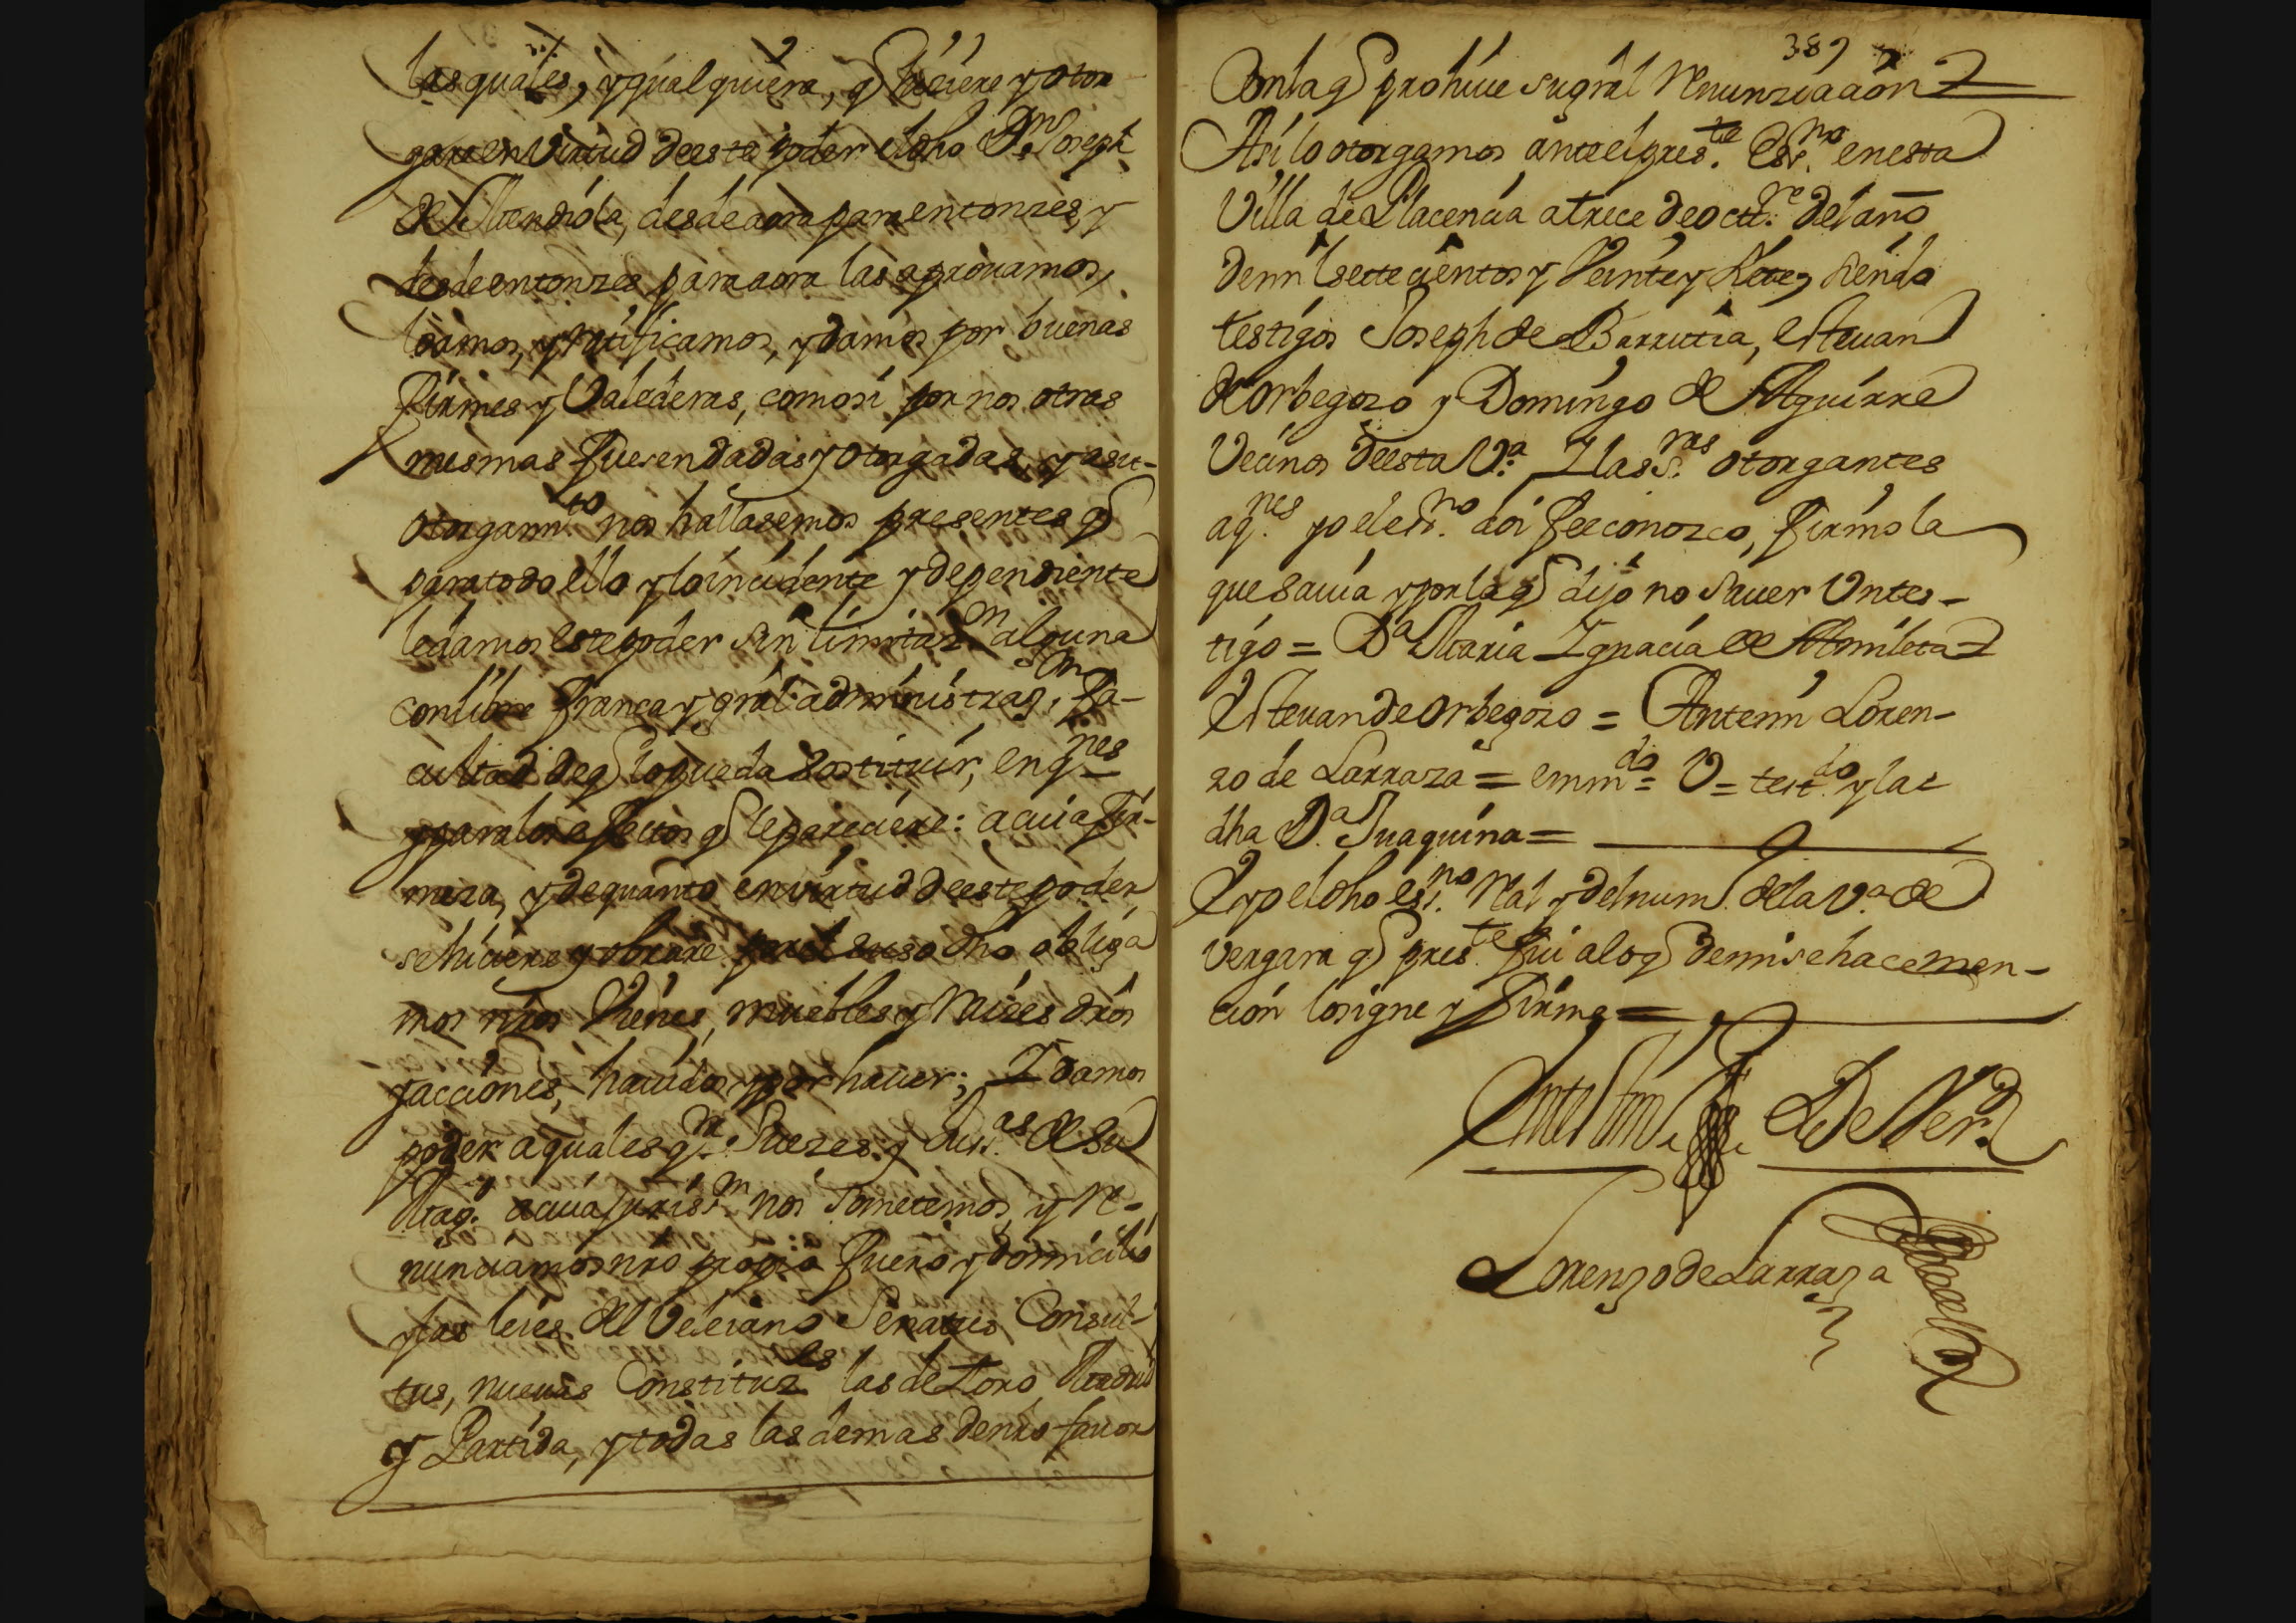 las quales, y qualquiera, q̃ hiciere y otor
gare en Virtud de este poder el dho Dn. Joseph
de Mendiola, desde aora para entonzes, y
desde entonzes para aora las aprouamos,
loamos, y ratificamos, y damos por buenas
firmes y Valederas, como si por nos otras
mesmas fuesen dadas y otorgadas, y a su
otorgamto. nos hallasemos presentes q̃
para todo ello y lo incidente y dependiente
le damos este poder sin limitazn. alguna
con libre franca y grâl administrazon. fa-
cultad de q̃ lo pueda sostituir, en qnes
y para los efectos q̃ le pareciere: a cuia fir-
meza, y de quanto en virtud de este poder
se hiciere y obrare por el suso dho obliga
mos nros Vienes, muebles y raizes dros
y acciones, hauidos y por hauer; I damos
poder a quales qra. Juezes y Juss.as de su
Mag. a cuia jurisn. nos sometemos, y re-
nunciamos nro propio fuero y domicilio
y las leies del Veleiano Senatus Consul-
tus, nueuas Constituzes. las de Toro, Madrid
y Partida, y todas las demas de nro fauor
389
Con la q̃ prohiue su grâl renunziacion
Asi lo otorgamos ante el preste. Essno. en esta
Villa de Placencia a trece de octtre. del año
de mil settecientos y Veinte y siete, siendo
testigos Joseph de Barrutia, Esteuan
de Orbegozo y Domingo de Aguirre
Vecinos de esta Va. I las Sras. otorgantes
a qnes. yo el essno. doi fee conozco, firmó la
que sauia y por la q̃ dijo no sauer Un tes-
tigo = Da. Maria Ignacia de Amileta =
Esteuan de Orbegozo = Ante mi Loren-
zo de Larraza = emmdo = V = testdo. y la =
dha Da. Juaquina =
E yo el dho essno. Ral y del num. de la Va. de
Vergara q̃ preste. fui a lo q̃ de mi se hace men-
cion lo signe y firme =
De Ver.d
Lorenzo de Larraza